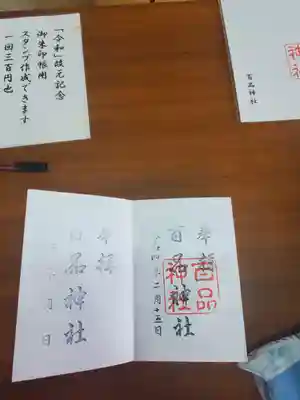 「令和」改元記念
御朱印帳用
スタンプ作成できます
一回三百円也
百品神社
奉拝
百品神社
二月十五日
百品
神社
奉拝
品神社
月 日